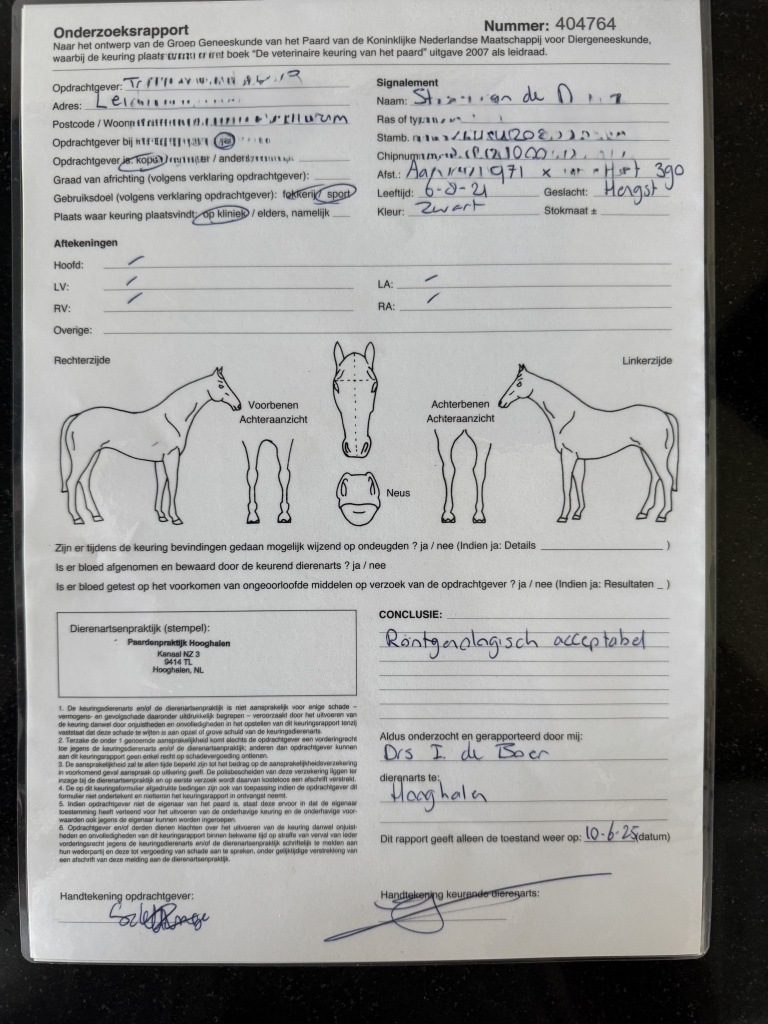 Onderzoeksrapport
Nummer: 404764
Naar het ontwerp van de Groep Geneeskunde van het Paard van de Koninklijke Nederlandse Maatschappij voor Diergeneeskunde,
waarbij de keuring plaats boek "De veterinaire keuring van het paard" uitgave 2007 als leidraad.
Opdrachtgever:
Adres:
Postcode / Woonp
Opdrachtgever bij
Opdrachtgever is: koper / / anders
Graad van africhting (volgens verklaring opdrachtgever):
Gebruiksdoel (volgens verklaring opdrachtgever): fokkerij / sport
Plaats waar keuring plaatsvindt: op kliniek / elders, namelijk
Signalement
Naam: de
Ras of type
Stamb.
Chipnum
Afst.: 1971 x 390
Leeftijd: 6-8-21 Geslacht: Hengst
Kleur: Zwart Stokmaat ±
Aftekeningen
Hoofd: /
LV: / LA: /
RV: / RA: /
Overige:
Rechterzijde
Linkerzijde
Voorbenen
Achteraanzicht
Achterbenen
Achteraanzicht
Neus
Zijn er tijdens de keuring bevindingen gedaan mogelijk wijzend op ondeugden ? ja / nee (Indien ja: Details )
Is er bloed afgenomen en bewaard door de keurend dierenarts ? ja / nee
Is er bloed getest op het voorkomen van ongeoorloofde middelen op verzoek van de opdrachtgever ? ja / nee (Indien ja: Resultaten _ )
Dierenartsenpraktijk (stempel):
Paardenpraktijk Hooghalen
Kanaal NZ 3
9414 TL
Hooghalen, NL
CONCLUSIE:
Röntgenologisch acceptabel
1. De keuringsdierenarts en/of de dierenartsenpraktijk is niet aansprakelijk voor enige schade –
vermogens- en gevolgschade daaronder uitdrukkelijk begrepen – veroorzaakt door het uitvoeren van
de keuring danwel door onjuistheden en onvolledigheden in het opstellen van dit keuringsrapport tenzij
vaststaat dat deze schade te wijten is aan opzet of grove schuld van de keuringsdierenarts.
2. Terzake de onder 1 genoemde aansprakelijkheid komt slechts de opdrachtgever een vorderingrecht
toe jegens de keuringsdierenarts en/of de dierenartspraktijk; anderen dan opdrachtgever kunnen
aan dit keuringsrapport geen enkel recht op schadevergoeding ontlenen.
3. De aansprakelijkheid zal te allen tijde beperkt zijn tot het bedrag op de aansprakelijkheidsverzekering
in voorkomend geval aanspraak op uitkering geeft. De polisbescheiden van deze verzekering liggen ter
inzage bij de dierenartsenpraktijk en op eerste verzoek wordt daarvan kosteloos een afschrift verstrekt.
4. De op dit keuringsformulier afgedrukte bedingen zijn ook van toepassing indien de opdrachtgever dit
formulier niet ondertekent en niettemin het keuringsrapport in ontvangst neemt.
5. Indien opdrachtgever niet de eigenaar van het paard is, staat deze ervoor in dat de eigenaar
toestemming heeft verleend voor het uitvoeren van de onderhavige keuring en de onderhavige voor-
waarden ook jegens de eigenaar kunnen worden ingeroepen.
6. Opdrachtgever en/of derden dienen klachten over het uitvoeren van de keuring danwel onjuist-
heden en onvolledigheden van dit keuringsrapport binnen bekwame tijd op straffe van verval van ieder
vorderingsrecht jegens de keuringsdierenarts en/of de dierenartsenpraktijk schriftelijk te melden aan
hun wederpartij en deze tot vergoeding van schade aan te spreken, onder gelijktijdige verstrekking van
een afschrift van deze melding aan de dierenartsenpraktijk.
Aldus onderzocht en gerapporteerd door mij:
Drs I. de Boer
dierenarts te:
Hooghalen
Dit rapport geeft alleen de toestand weer op: 10-6-25 (datum)
Handtekening opdrachtgever:
Handtekening keurende dierenarts: